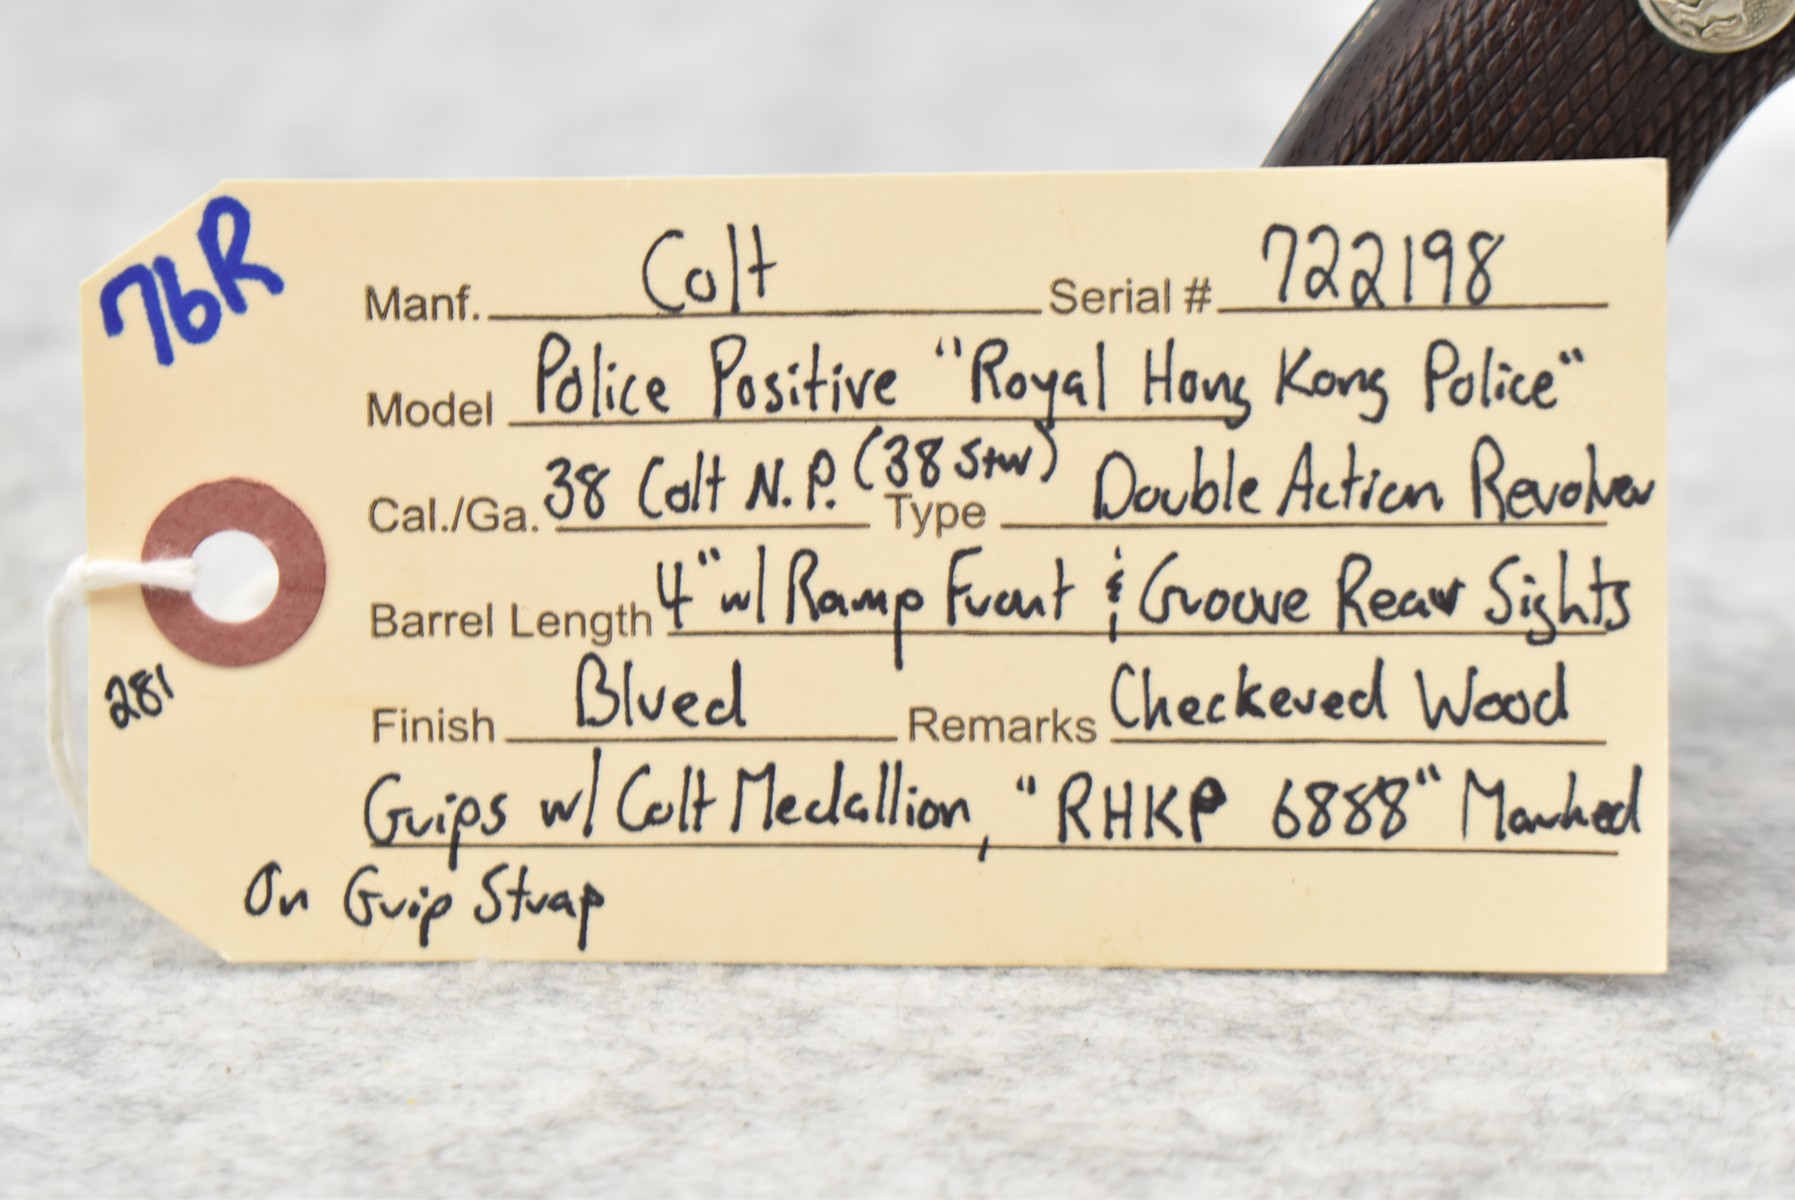 76R
Manf. Colt Serial # 722198
Model Police Positive "Royal Hong Kong Police"
Cal./Ga. 38 Colt N.P. (38 S+W) Type Double Action Revolver
Barrel Length 4" w/ Ramp Front & Groove Rear Sights
281
Finish Blued Remarks Checkered Wood
Grips w/ Colt Medallion, "RHKP 6888" Marked
On Grip Strap